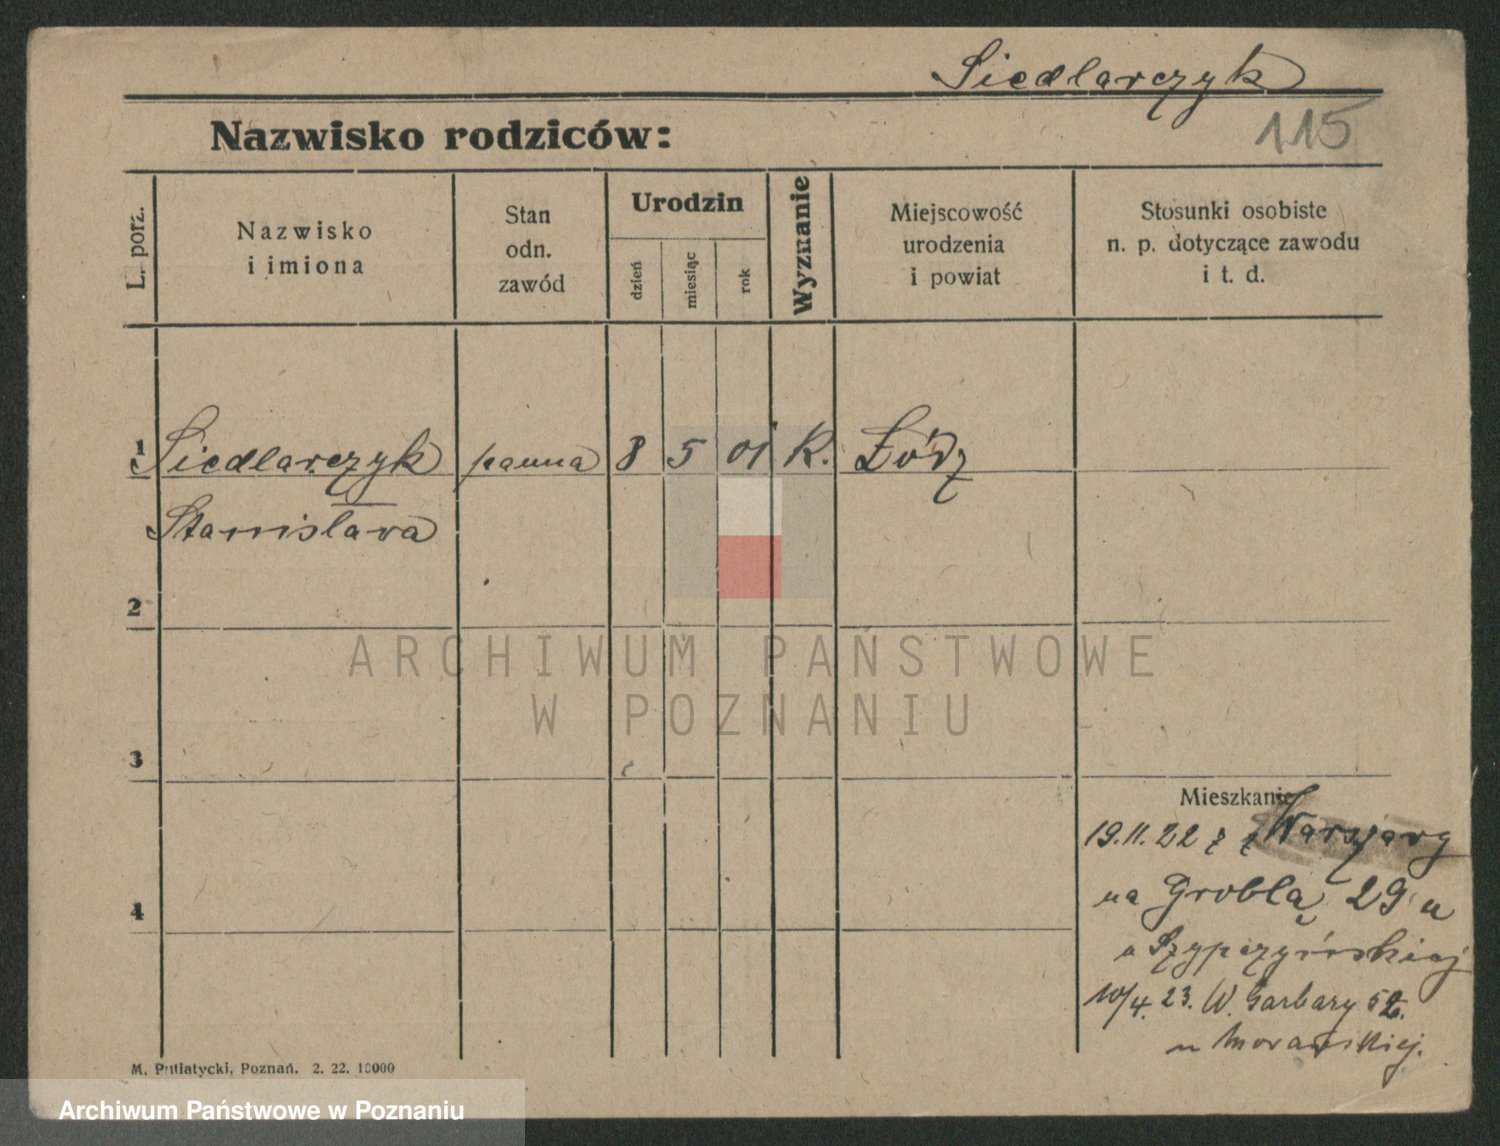 Siedlarczyk
115
Nazwisko rodziców:
L. porz.
Nazwisko
i imiona
Stan
odn.
zawód
Urodzin
dzień
miesiąc
rok
Wyznanie
Miejscowość
urodzenia
i powiat
Stosunki osobiste
n. p. dotyczące zawodu
i t. d.
1 Siedlarczyk panna 8 5 01 K. Łódź
Stanisława
2
3
4
Mieszkanie
19.11.22 z Warszawy
na Groblą 29 u
Szypczyńskiej
10/4. 23. W. Garbary 52.
u Morawskiej.
M. Putiatycki, Poznań. 2. 22. 10000
ARCHIWUM PAŃSTWOWE
W POZNANIU
Archiwum Państwowe w Poznaniu